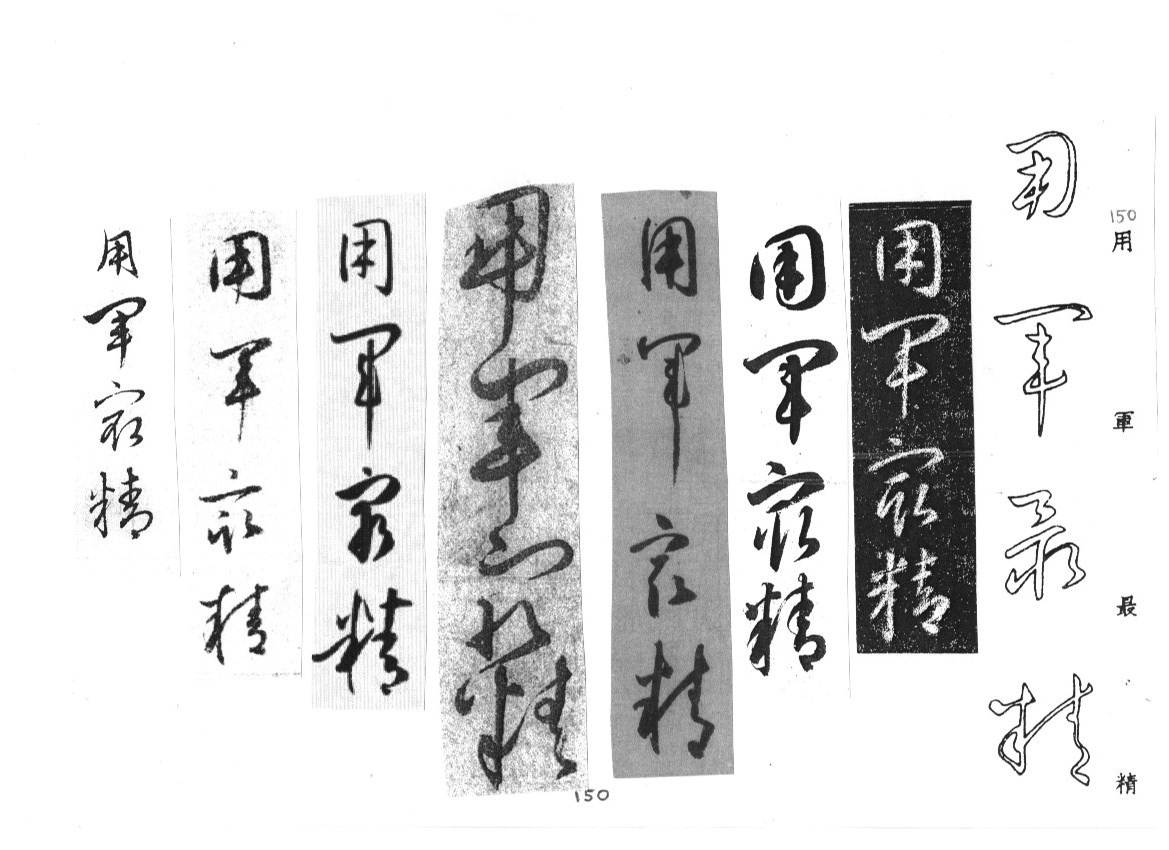 150用軍最精
用軍最精
用軍最精
用軍最精
用軍最精
用軍最精
用軍最精
用軍最精
用軍最精
150